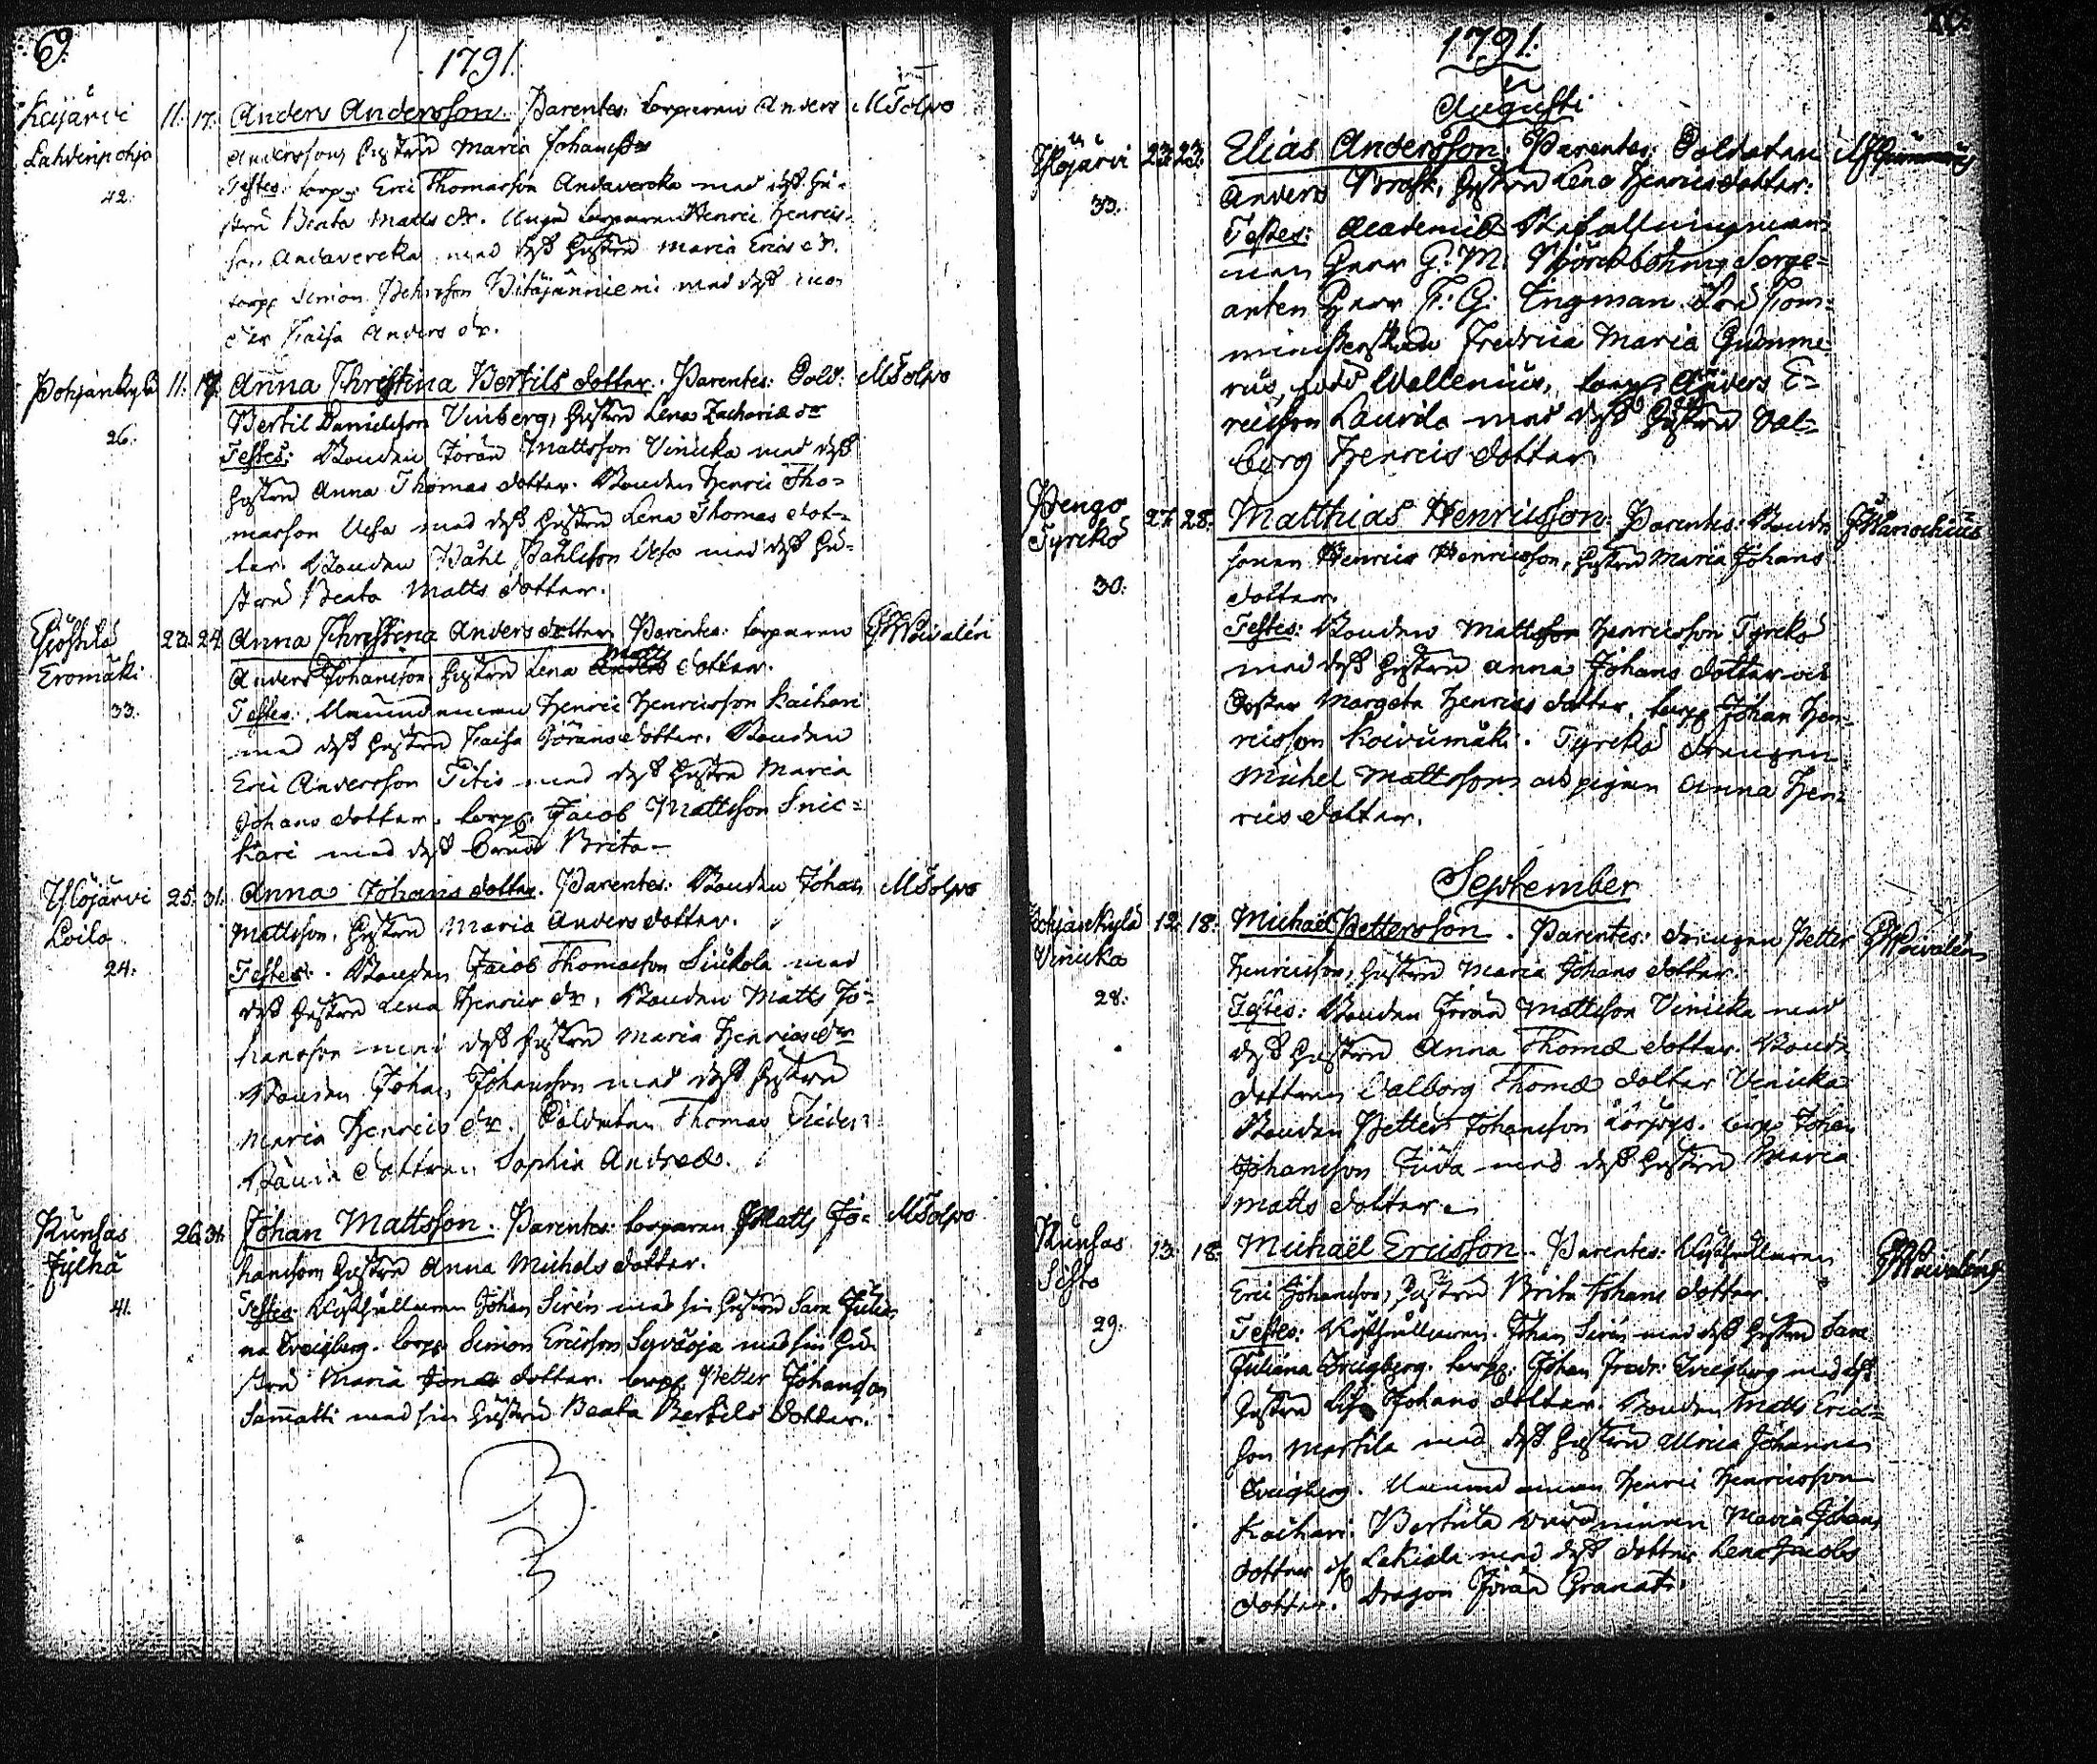 69.
1791.
Kuijärvi 11. 17. Anders Andersson. Parentes: torparen Anders M Tolpo
Lahdenpohja Anderssons hustru Maria Johansdr
42. Testes: torp. Eric Thomasson Andavercka med dess hu-
stru Beata Matts dr. Unga torparen Henric Henrics-
son Andavercka med dess hustru Maria Erics dr.
torp. Simon Pehrsson med dess mo
der Caisa Anders dr.
Pohjankylä 11. 17. Anna Christina Bertils dotter. Parentes: Sold: M Tolpo
26. Bertil Danielsson Vinberg, hustru Lena Zachariæ dr
Testes: Bonden Jöran Mattsson Vinicka med dess
hustru Anna Thomas dotter. Bonden Henric Tho-
masson Uksa med dess hustru Lena Thomas dot-
ter. Bonden Påhl Påhlsson Uksa med dess hu-
stru Beata Matts dotter.
23. 24. Anna Christina Anders dotter Parentes: torparen
Eromäki Anders Johansson, hustru Lena Matts dotter.
33. Testes: Henric Henricsson Kaihari
med dess hustru Caisa Görans dotter. Bonden
Eric Andersson Titis med dess hustru Maria
Johans dotter. torp. Jacob Mattsson Snic-
kari med dess Brita
Ylöjärvi 25. 31. Anna Johans dotter. Parentes: Bonden Johan M Tolpo
Loilo Mattsson, hustru Maria Anders dotter.
24. Testes: Bonden Jacob Thomasson Siukola med
dess hustru Lena Henrics dr, Bonden Matts Jo-
hansson med dess hustru Maria Henrics dr
Bonden Johan Johansson med dess hustru
Maria Henrics dr. Soldaten Thomas
dottren Sophia Andreæ.
Kunsas 26. 31. Johan Mattsson. Parentes: torparen Matts Jo- M Tolpo
Jylhä hansson hustru Anna Michels dotter.
41. Testes: Johan Sirén med sin hustru Sara Julia-
na Tveigberg. torp. Simon Ericsson Syväoja med sin hu-
stru Maria Jonæ dotter. torp. Petter Johansson
Sammatti med sin hustru Beata Bertils dotter.
1791.
Augusti
Ylöjärvi 23. 23. Elias Andersson. Parentes: Soldaten
33. Anders Brask, hustru Lena Henrics dotter.
Testes: Academiæ Befallningsman-
nen Herr G. M. Serge-
anten Herr F. G. Engman. Fru Com-
ministerskan Fredrica Maria Gumme-
rus, född Wallenius, torp. Anders E-
ricsson Laurila med dess hustru Val-
borg Henrics dotter.
Pengo 27. 28. Matthias Henricsson. Parentes: Bonde
Tyrckö sonen Henric Henricsson, hustru Maria Johans
30. dotter.
Testes: Bonden Matts Henricsson Tyrckö
med dess hustru Anna Johans dotter och
Syster Margeta Henrics dotter. torp. Johan Hen-
ricsson Koivumäki. Tyrckö drengen
Michel Mattsson och pigan Anna Hen-
rics dotter.
September
Pohjankylä 12. 18. Michaël Pettersson. Parentes: drengen Petter
Vinicka Henricsson, hustru Maria Johans dotter.
28. Testes: Bonden Jöran Mattsson Vinicka med
dess hustru Anna Thomæ dotter. Bonde
dottren Valborg Thomæ dotter Vinicka
Bonden Petter Johansson torp. Johan
Johansson Juva med dess hustru Maria
Matts dotter.
Kunsas 13. 18. Michaël Ericsson. Parentes:
Eric Johansson, hustru Brita Johans dotter.
29. Testes: Johan Sirén med dess hustru Sara
Juliana Tveigberg. torp. Johan Fredr: Tveigberg med dess
hustru Lisa Johans dotter. Bonden Matts Erics-
son Martila med dess hustru Ulrica Johanna
Tveigberg. Henric Henricsson
Kaihari. Maria Johans
dotter Lakiala med dess dotter Lena Jacobs
dotter. Dragon Jöran Granat.